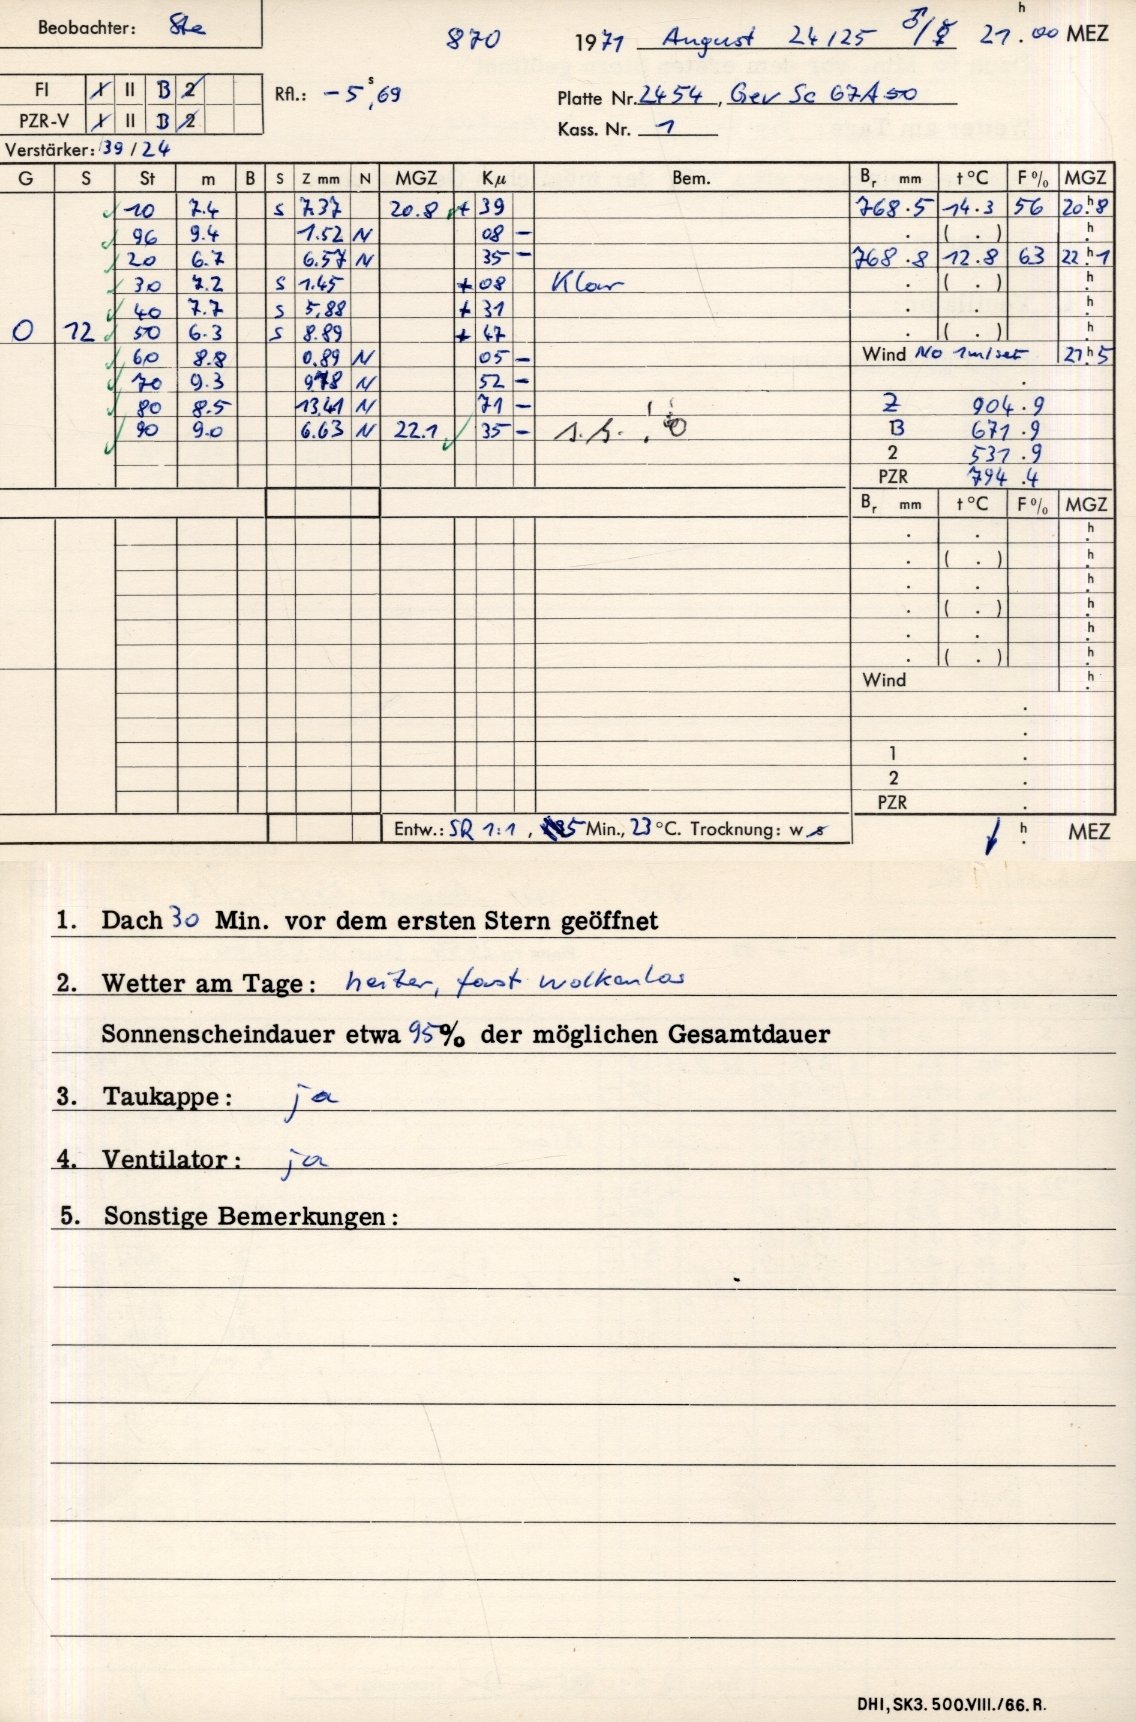 Beobachter: Ste
870
1971 August 24/25 ♂/☿ 21.h00 MEZ
FI I II B 2
Rfl.: -5s,69
Platte Nr. 2454, Gev Sc 67A50
PZR-V I II B 2
Kass. Nr. 1
Verstärker: 39/24
G S St m B S Z mm N MGZ Kμ Bem. Br mm t°C F% MGZ
✓ 10 7.4 S 7.37 20.8 ✓ + 39 768.5 14.3 56 20.h8
✓ 96 9.4 1.52 N 08 - . ( . ) h.
✓ 20 6.7 6.57 N 35 - 768.8 12.8 63 22.h1
✓ 30 7.2 S 1.45 + 08 Klar . ( . ) h.
✓ 40 7.7 S 5.88 + 31 . . h.
O 12 ✓ 50 6.3 S 8.89 + 47 . ( . ) h.
✓ 60 8.8 0.89 N 05 - Wind NO 1m/sek 21h5
✓ 70 9.3 9.78 N 52 - .
✓ 80 8.5 13.41 N 71 - Z 904.9
✓ 90 9.0 6.63 N 22.1 ✓ 35 - s.h. B 671.9
2 531.9
PZR 794.4
Br mm t°C F% MGZ
. . h.
. ( . ) h.
. . h.
. ( . ) h.
. . h.
. ( . ) h.
Wind h.
.
.
1 .
2 .
PZR .
Entw.: SR 1:1, 5 Min., 23°C. Trocknung: w s
h. MEZ
1. Dach 30 Min. vor dem ersten Stern geöffnet
2. Wetter am Tage: heiter, fast wolkenlos
Sonnenscheindauer etwa 95% der möglichen Gesamtdauer
3. Taukappe: ja
4. Ventilator: ja
5. Sonstige Bemerkungen:
DHI, SK3. 500.VIII./66. R.